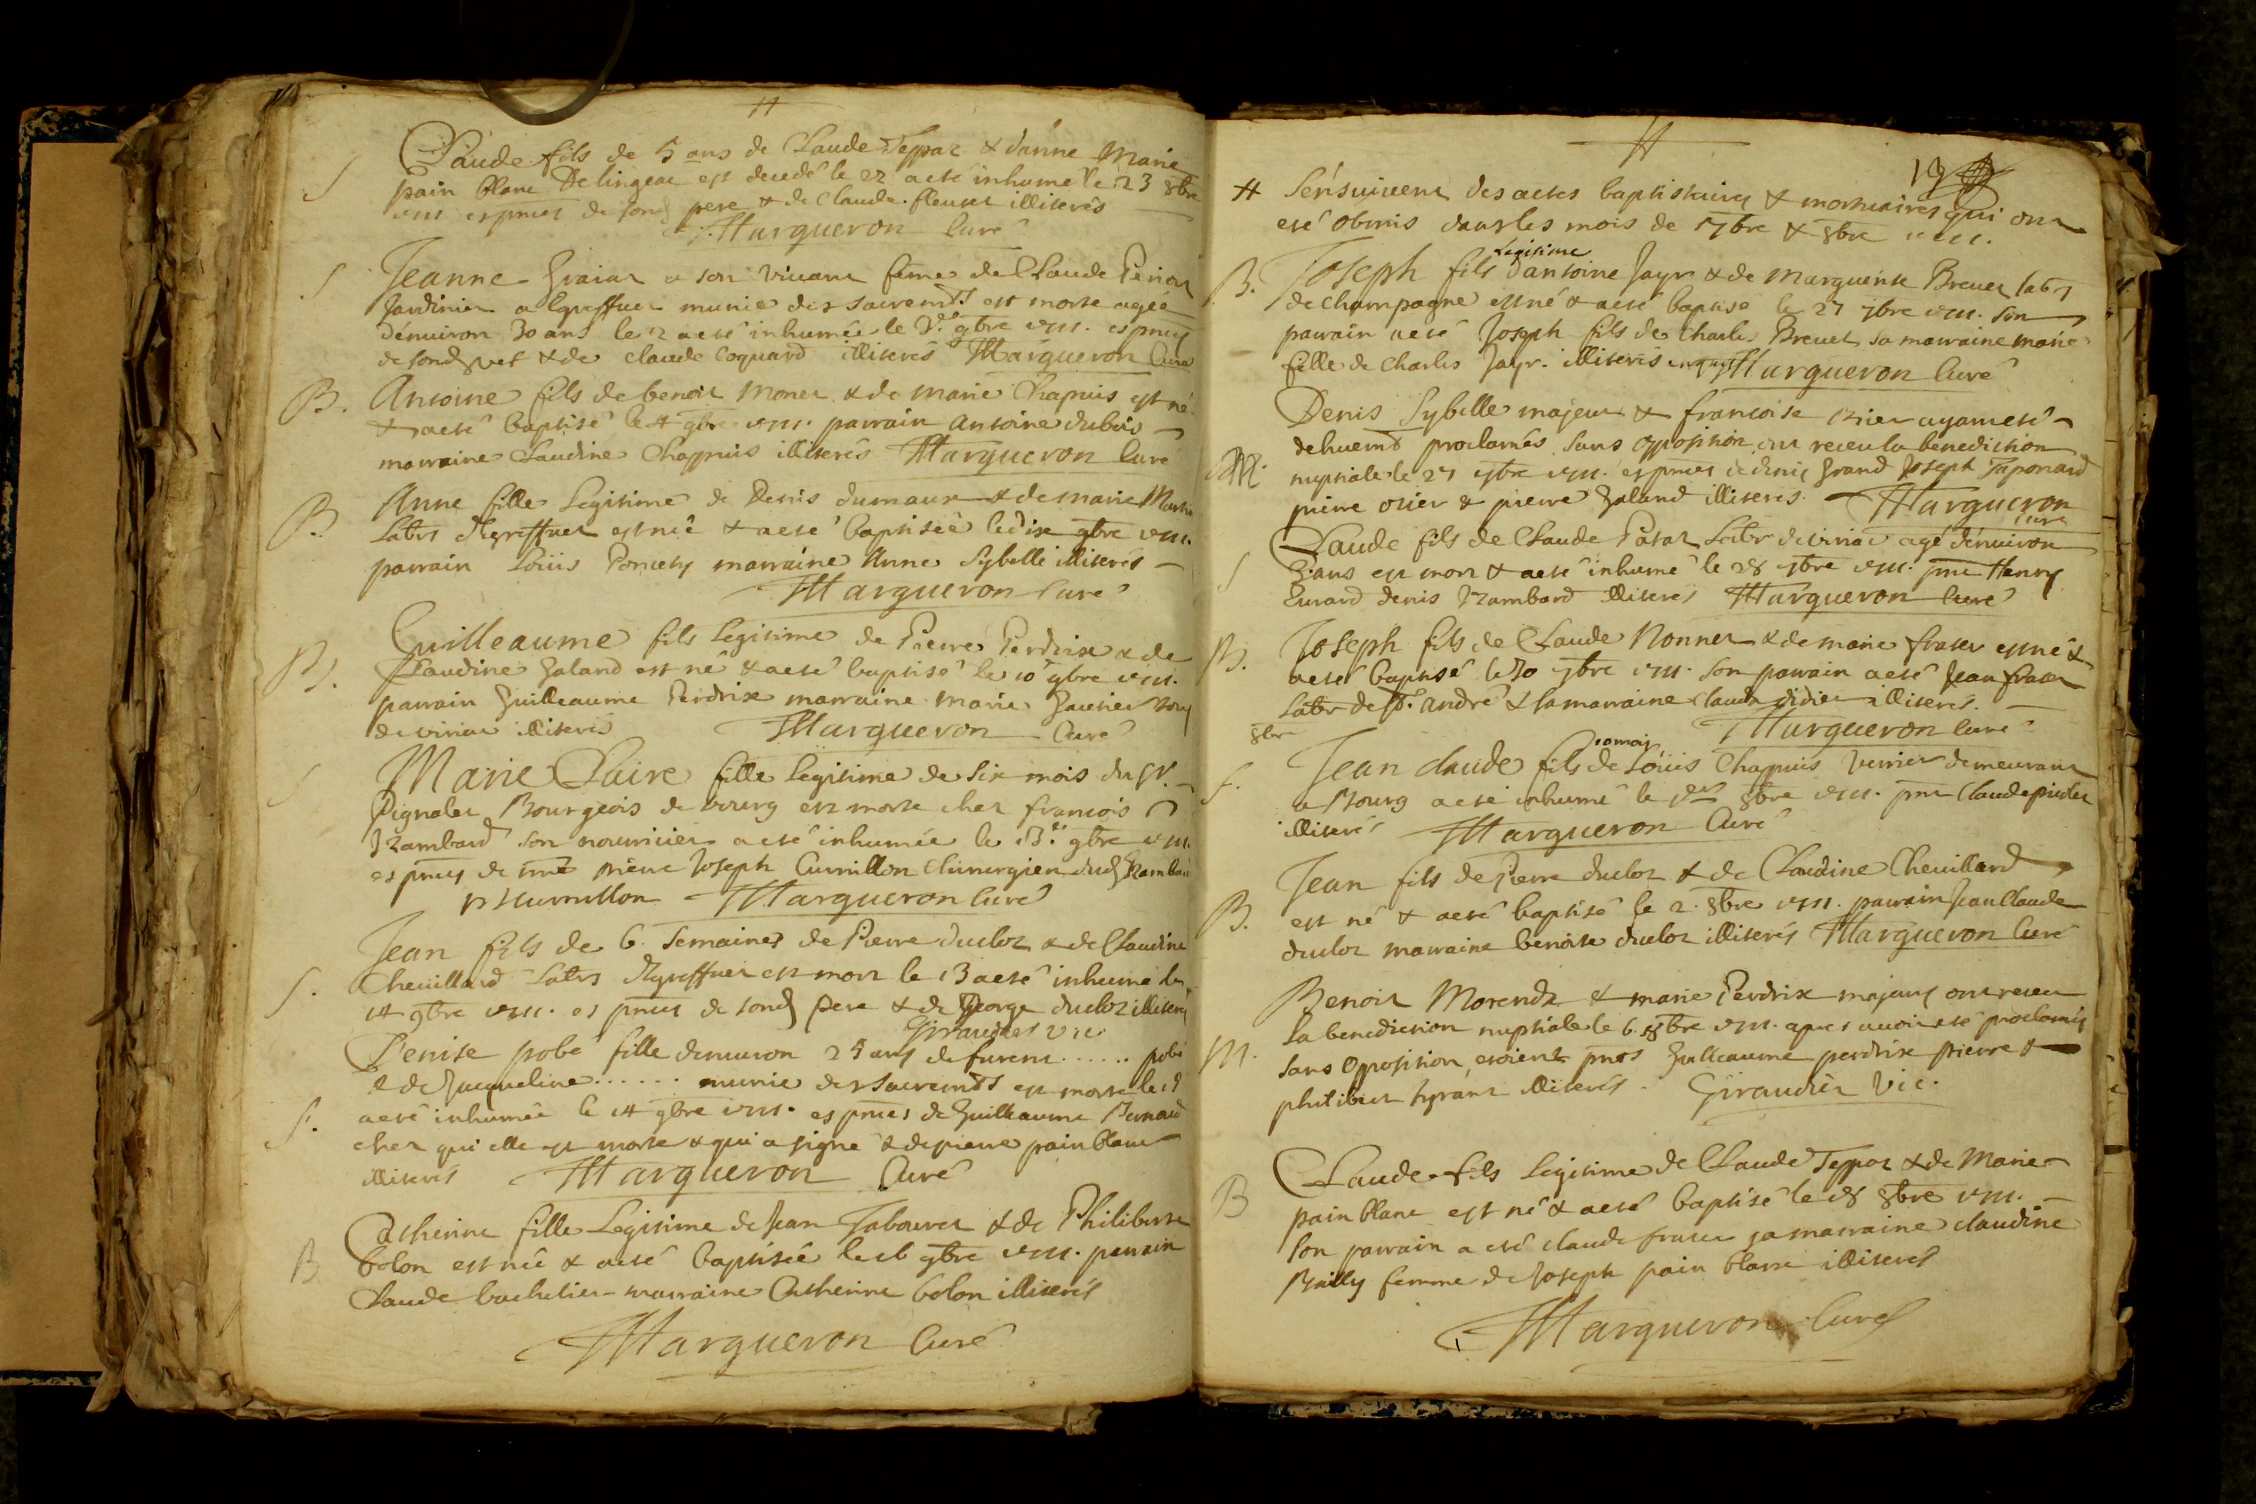 Claude fils de 5 ans de Claude Teppaz & d'anne Marie
pain blanc Delingeac est decedé le 22 a eté inhumé le 23 8bre
es pnces de sond pere & de Claude fleuret illiterés
Margueron Curé
Jeanne a son vivant feme de Claude Perior
Jardinier munie des sacremts est morte agée
d'enuiron 30 ans le 2 a eté inhumée le 3e 9bre 1711. es pnces
de sond & de claude Coquard illiterés Margueron Curé
B. Antoine fils de benoit Monet & de marie Chapuis est né
& a eté baptisé le 4 9bre 1711. parrain Antoine dubois
marraine Claudine Chappuis illiterés Margueron Curé
B. Anne fille Legitime de Denis dumaux & de marie
Labrs est née & a eté baptisée le dix 9bre 1711.
parrain Loüis Poncety marraine Anne Sybelle illiterés
Margueron Curé
B. Guilleaume fils Legitime de Pierre Perdrix & de
Claudine Galand est né & a eté baptisé le 10 9bre 1711.
parrain Guilleaume Perdrix marraine marie Gautier
de viriat illiterés Margueron Curé
S Marie Claire fille Legitime de six mois du Sr.
Pignalet Bourgeois de bourg est morte chez francois
Rambard son nourricier a eté inhumée le 13e 9bre 1711
es pnces de pierre Joseph Cumillon Chirurgien dud Rambard
Margueron Curé
S. Jean fils de 6. semaines de Pierre ducloz & de Claudine
Cheuillard Labrs est mort le 13 a eté inhumé le
14 9bre 1711. es pnces de sond pere & de George ducloz illiterés
Giraudier vic
S. Denise pobé fille d'enuiron 25 ans de furent ...... pobé
& de Jacqueline ...... munie des sacremts est morte le
a eté inhumée le 14 9bre 1711. es pnces de Guilleaume Bernard
chez qui elle est morte & qui a signé & de pierre pain blanc
illiterés Margueron Curé
B Catherine fille Legitime de Jean Tabouret & de Philiberte
bolon est née & a eté baptisée le 16 9bre 1711. parrain
Claude bachelier marraine Catherine bolon illiterés
Margueron Curé
S'ensuivent des actes baptistaires & mortuaires qui ont
eté obmis dans les mois de 7bre & 8bre 1711.
B. Joseph fils Legitime d'antoine Jayr & de Marguerite Breuet labrs
de Champagne est né & a eté baptisé le 27 7bre 1711. son
parrain a eté Joseph fils de Charles Breuet sa marraine marie
fille de Charles Jayr. illiterés Margueron Curé
M. Denis Sybelle majeur & francoise ayant eté
dehuemt proclamés sans opposition ont receu la benediction
nuptiale le 27 7bre 1711. es pnces de denis Grand Joseph
pierre & pierre Galand illiterés. Margueron
Curé
S Claude fils de Claude Patat Labr de viriat agé d'enuiron
ans est mort & a eté inhumé le 28 7bre 1711. pnt Henry
Euvard denis Rambard illiterés Margueron Curé
B. Joseph fils de Claude Nonnet & de marie frater est né &
a eté baptisé le 30 7bre 1711. son parrain a eté Jean frater
Labr de St. andré & sa marraine Claudine didier illiterés.
8bre Margueron Curé
S. Jean claude fils de Loüis Chapuis Verrier demeurant
a Bourg a eté inhumé le 8bre 1711. pnt Claude
illiterés Margueron Curé
B. Jean fils de Pierre ducloz & de Claudine Cheuillard
est né & a eté baptisé le 2. 8bre 1711. parrain Jean Claude
ducloz marraine benoite ducloz illiterés Margueron Curé
M. Benoit Morendz & marie Perdrix majeurs ont receu
la benediction nuptiale le 6. 8bre 1711. apres auoir eté proclamés
sans Opposition, etoient pnts Guilleaume perdrix pierre &
philibert tyrant illiterés. Giraudier Vic.
B Claude fils Legitime de Claude Teppaz & de Marie
pain blanc est né & a eté baptisé le 18 8bre 1711.
Son parrain a eté claude frater sa marraine claudine
Bailly femme de Joseph pain blanc illiterés
Margueron Curé